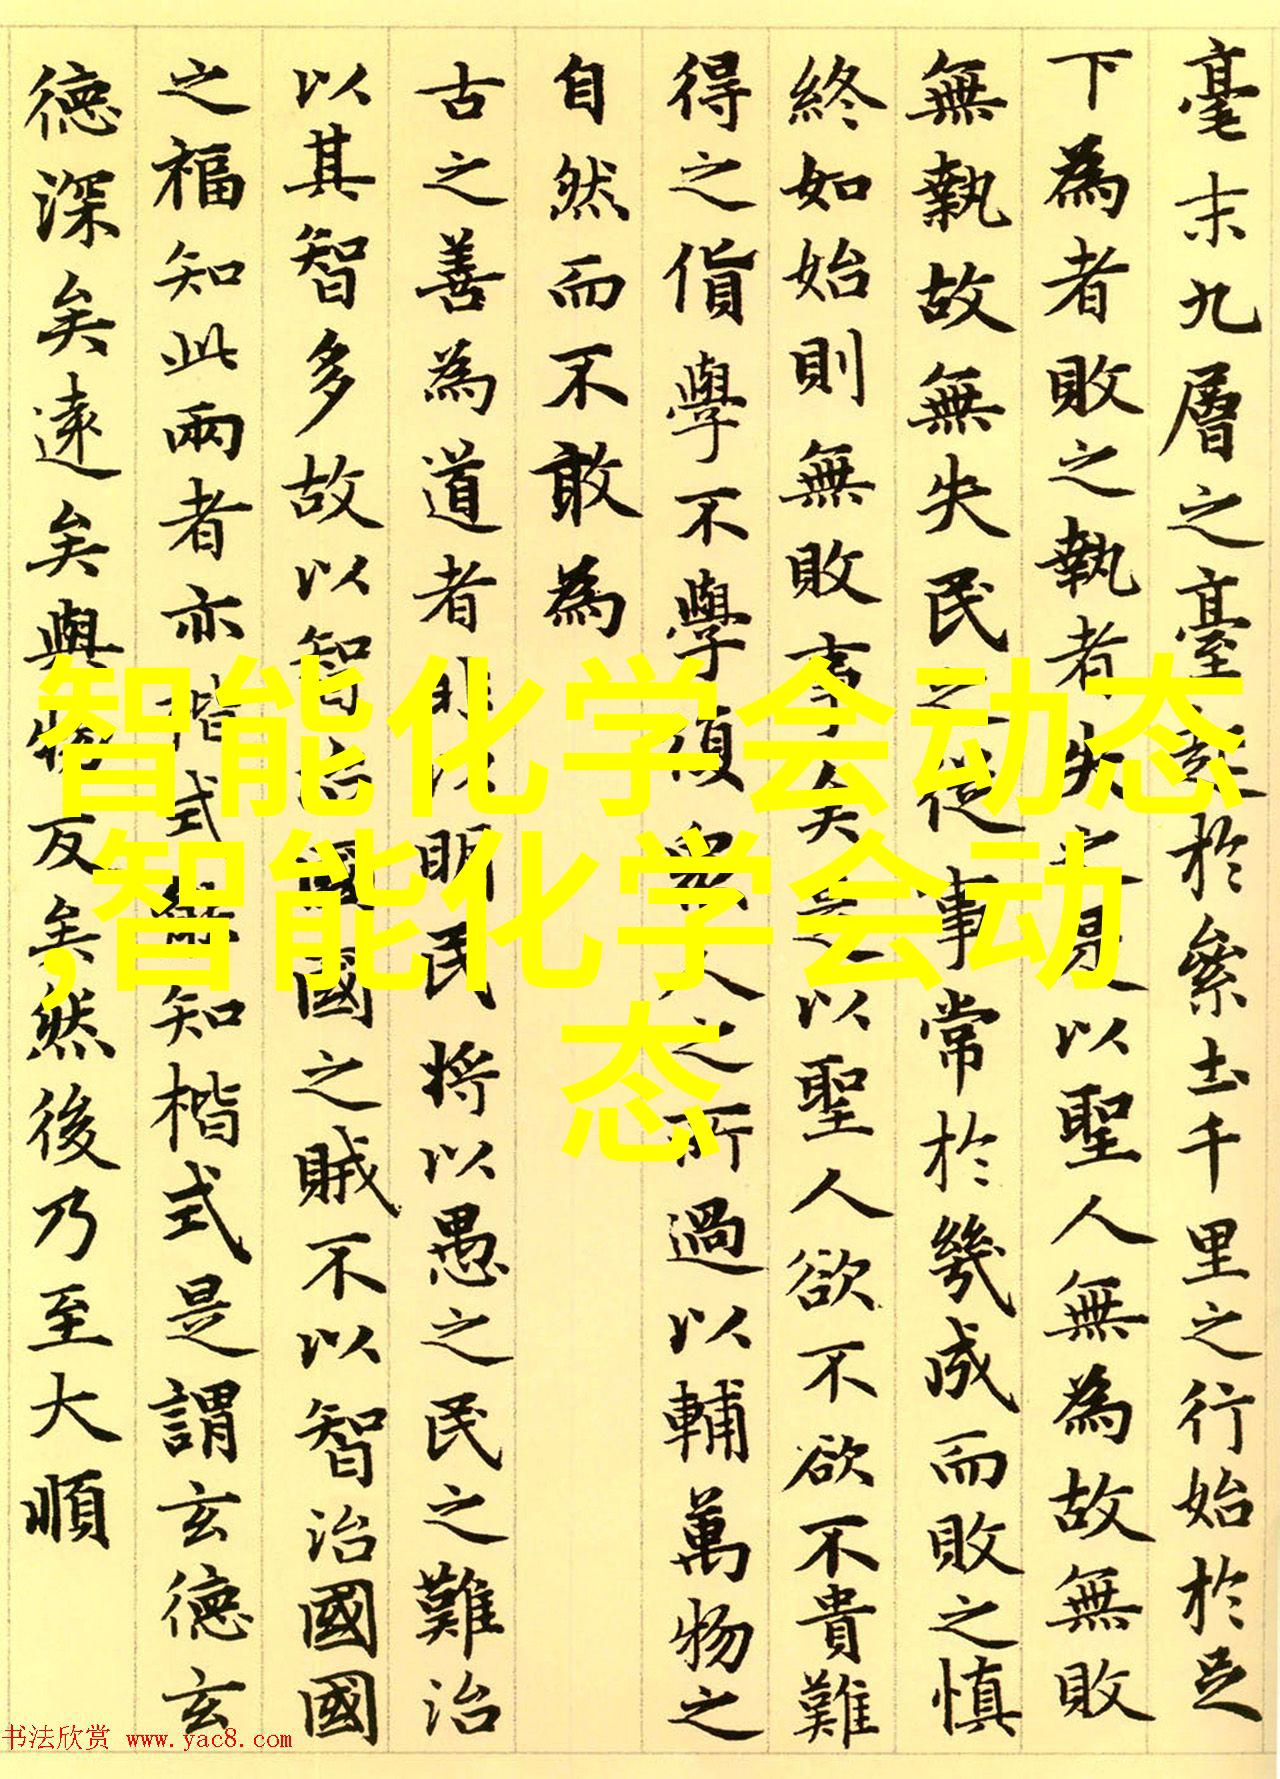 毫末九層之臺起於絫土千里之行始於足
下為者敗之執者失之是以聖人無為故無敗
無執故無失民之從事常於幾成而敗之慎
終如始則無敗事矣是以聖人欲不欲不貴難
得之貨學不學復眾人之所過以輔萬物之
自然而不敢為
古之善為道者非以明民將以愚之民之難治
以其智多故以智治國國之賊不以智治國國
之福知此兩者亦楷式能知楷式是謂玄德玄
德深矣遠矣與物反矣然後乃至大順
智能化学会动态
,智能化学会动
态
书法欣赏 www.yac8.com